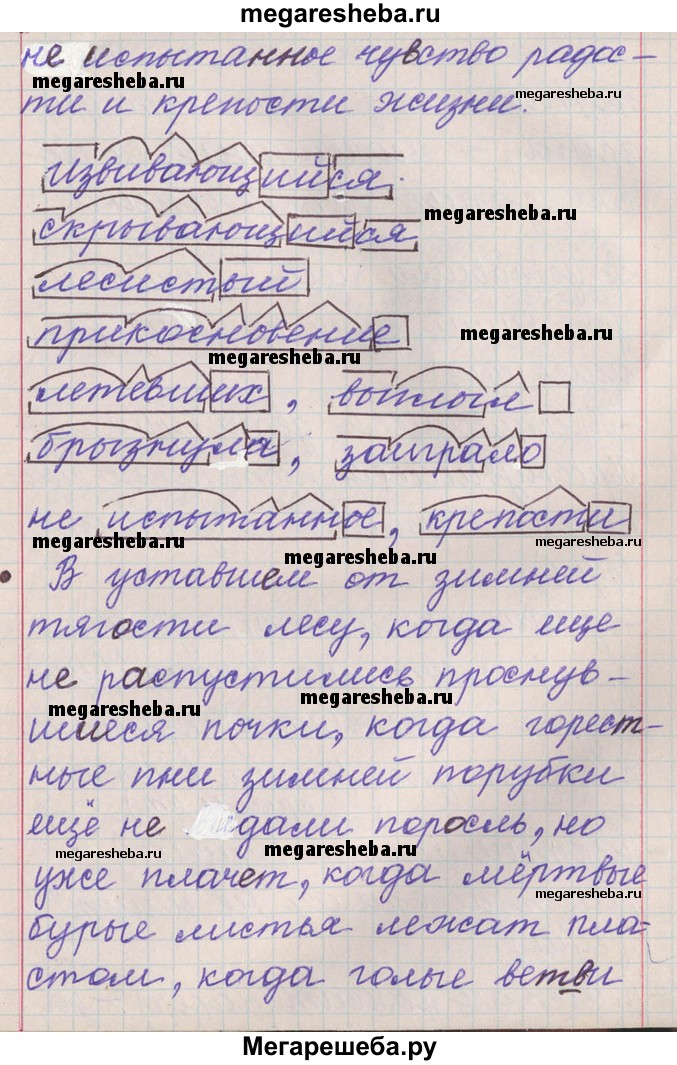 megaresheba.ru
не испытанное чувство радос-
megaresheba.ru
megaresheba.ru
ти и крепости жизни.
извивающийся.
megaresheba.ru
скрывающийся
лесистый
прикосновение
megaresheba.ru
megaresheba.ru
летевших, выплыл
брызнула, заиграло
не испытанное, крепости
megaresheba.ru
megaresheba.ru
megaresheba.ru
В уставшем от зимней
тягости лесу, когда еще
не распустились проснув-
megaresheba.ru
megaresheba.ru
шиеся почки, когда горест-
ные пни зимней порубки
ещё не дали поросль, но
megaresheba.ru
megaresheba.ru
уже плачет, когда мёртвые
megaresheba.ru
бурые листья лежат пла-
стом, когда голые ветви
Мегарешеба.ру